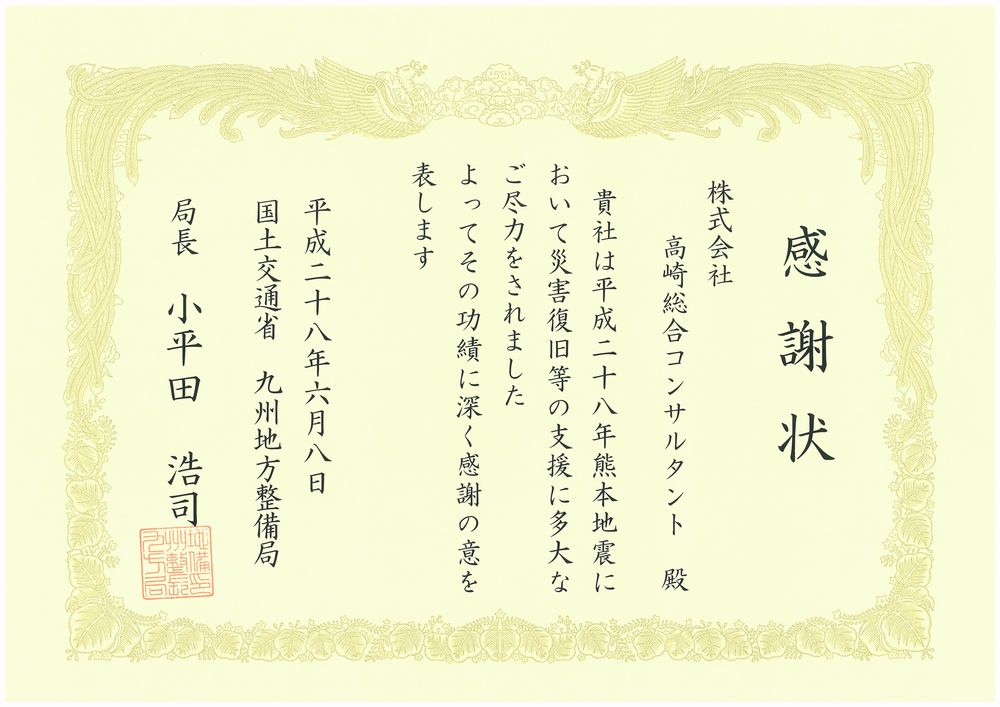 感謝状
株式会社
高崎総合コンサルタント 殿
貴社は平成二十八年熊本地震に
おいて災害復旧等の支援に多大な
ご尽力をされました
よってその功績に深く感謝の意を
表します
平成二十八年六月八日
国土交通省 九州地方整備局
局長 小平田 浩司